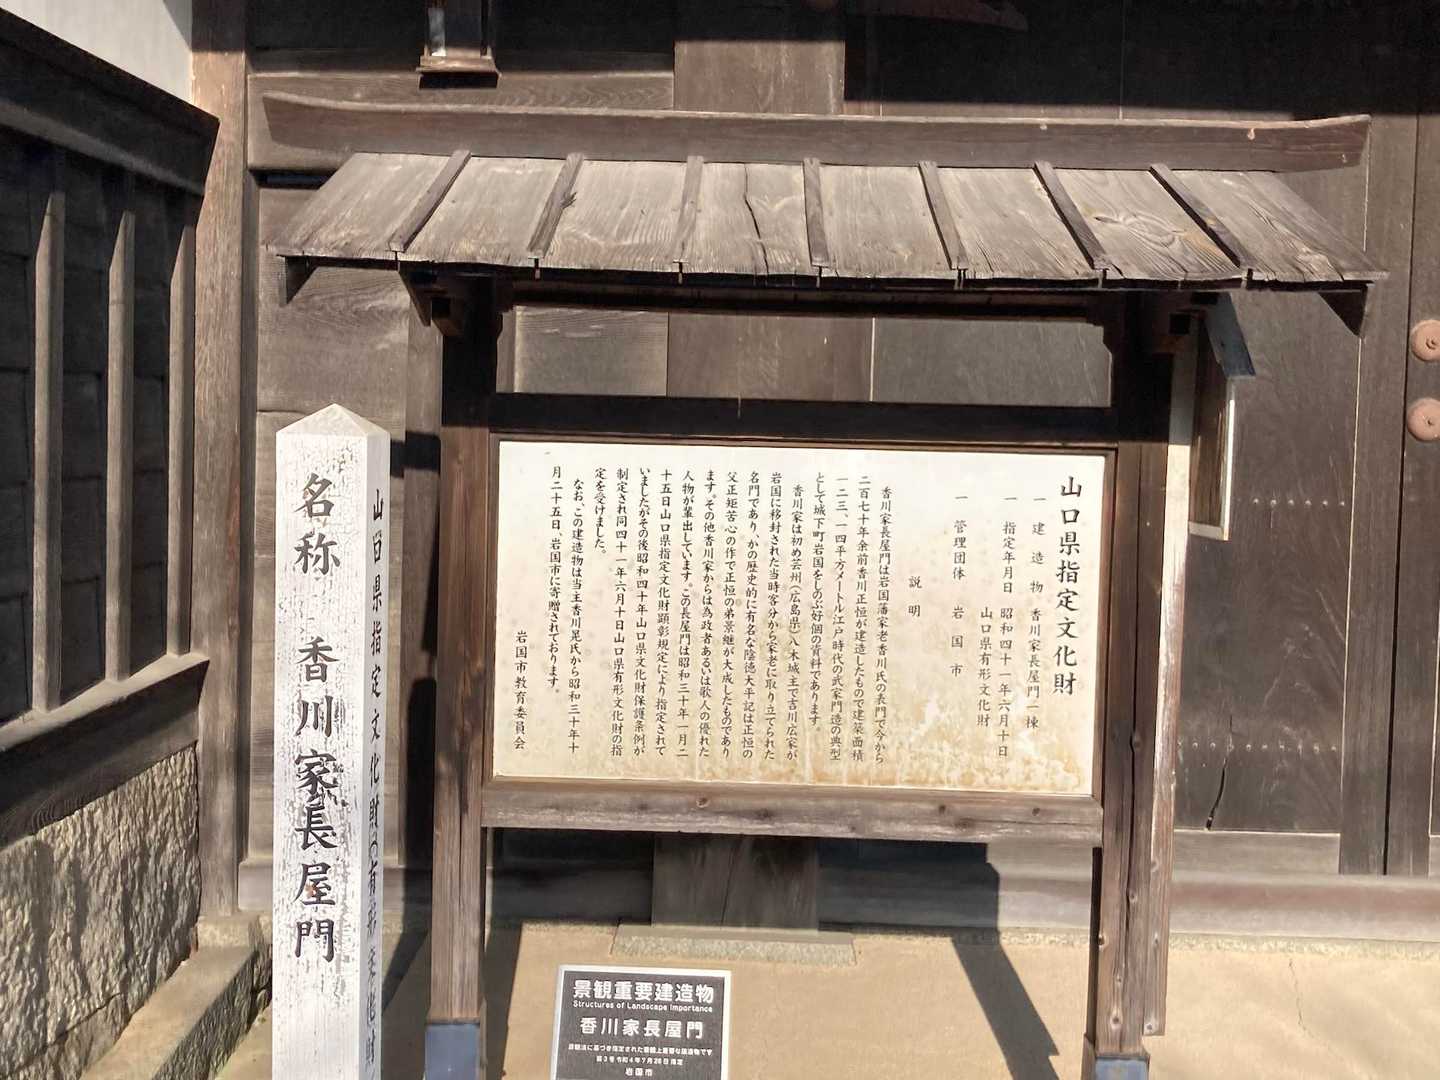 山口県指定文化財
一 建造物 香川家長屋門一棟
一 指定年月日 昭和四十一年六月十日
山口県有形文化財
一 管理団体 岩国市
説明
香川家長屋門は岩国藩家老香川氏の表門で今から
二百七十年余前香川正恒が建造したもので建築面積
一二三、一四平方メートル江戸時代の武家門造の典型
として城下町岩国をしのぶ好個の資料であります。
香川家は初め芸州(広島県)八木城主で吉川広家が
岩国に移封された当時客分から家老に取り立てられた
名門であり、かの歴史的に有名な陰徳太平記は正恒の
父正矩苦心の作で正恒の弟景継が大成したものであり
ます。その他香川家からは為政者あるいは歌人の優れた
人物が輩出しています。この長屋門は昭和三十年一月二
十五日山口県指定文化財顕彰規定により指定されて
いましたがその後昭和四十年山口県文化財保護条例が
制定され同四十一年六月十日山口県有形文化財の指
定を受けました。
なお、この建造物は当主香川晃氏から昭和三十年十
月二十五日、岩国市に寄贈されております。
岩国市教育委員会
山口県指定文化財(有形文化財
名称 香川家長屋門
景観重要建造物
Structures of Landscape Importance
香川家長屋門
景観法に基づき指定された景観上重要な建造物です
第3号 令和4年7月26日指定
岩国市